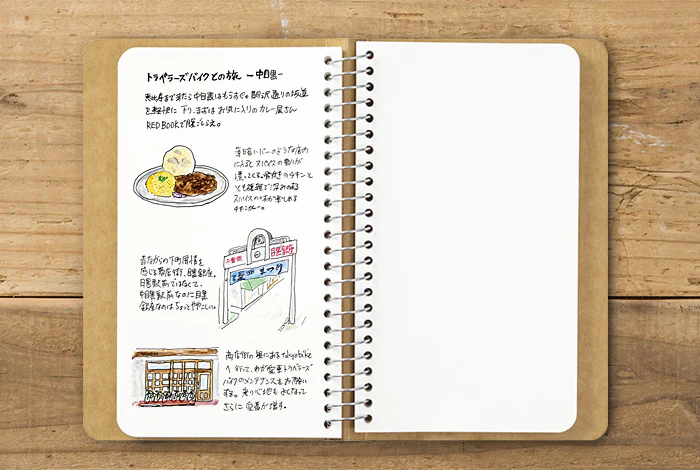 トラベラーズバイクとの旅 ー中目黒ー
恵比寿まで来たら中目黒はもうすぐ。駒沢通りの坂道
を軽快に下り、まずはお気に入りのカレー屋さん
RED BOOKで腹ごしらえ。
バーのような店内
に入ると スパイスの香りが
漂ってくる。骨付きのチキンと
とても複雑で深みのある
スパイスの味が楽しめる
チキンカレー。
昔ながらの下町風情を
感じる商店街、目黒銀座。
目黒駅前ではなくて、
中目黒駅前なのに目黒
銀座なのはちょっとややこしい。
二番街
目黒銀座
まつり
商店街の奥にあるtokyobike
へ行って、わが愛車トラベラーズ
バイクのメンテナンスをお願い
する。乗り心地もよくなって
さらに愛着が増す。